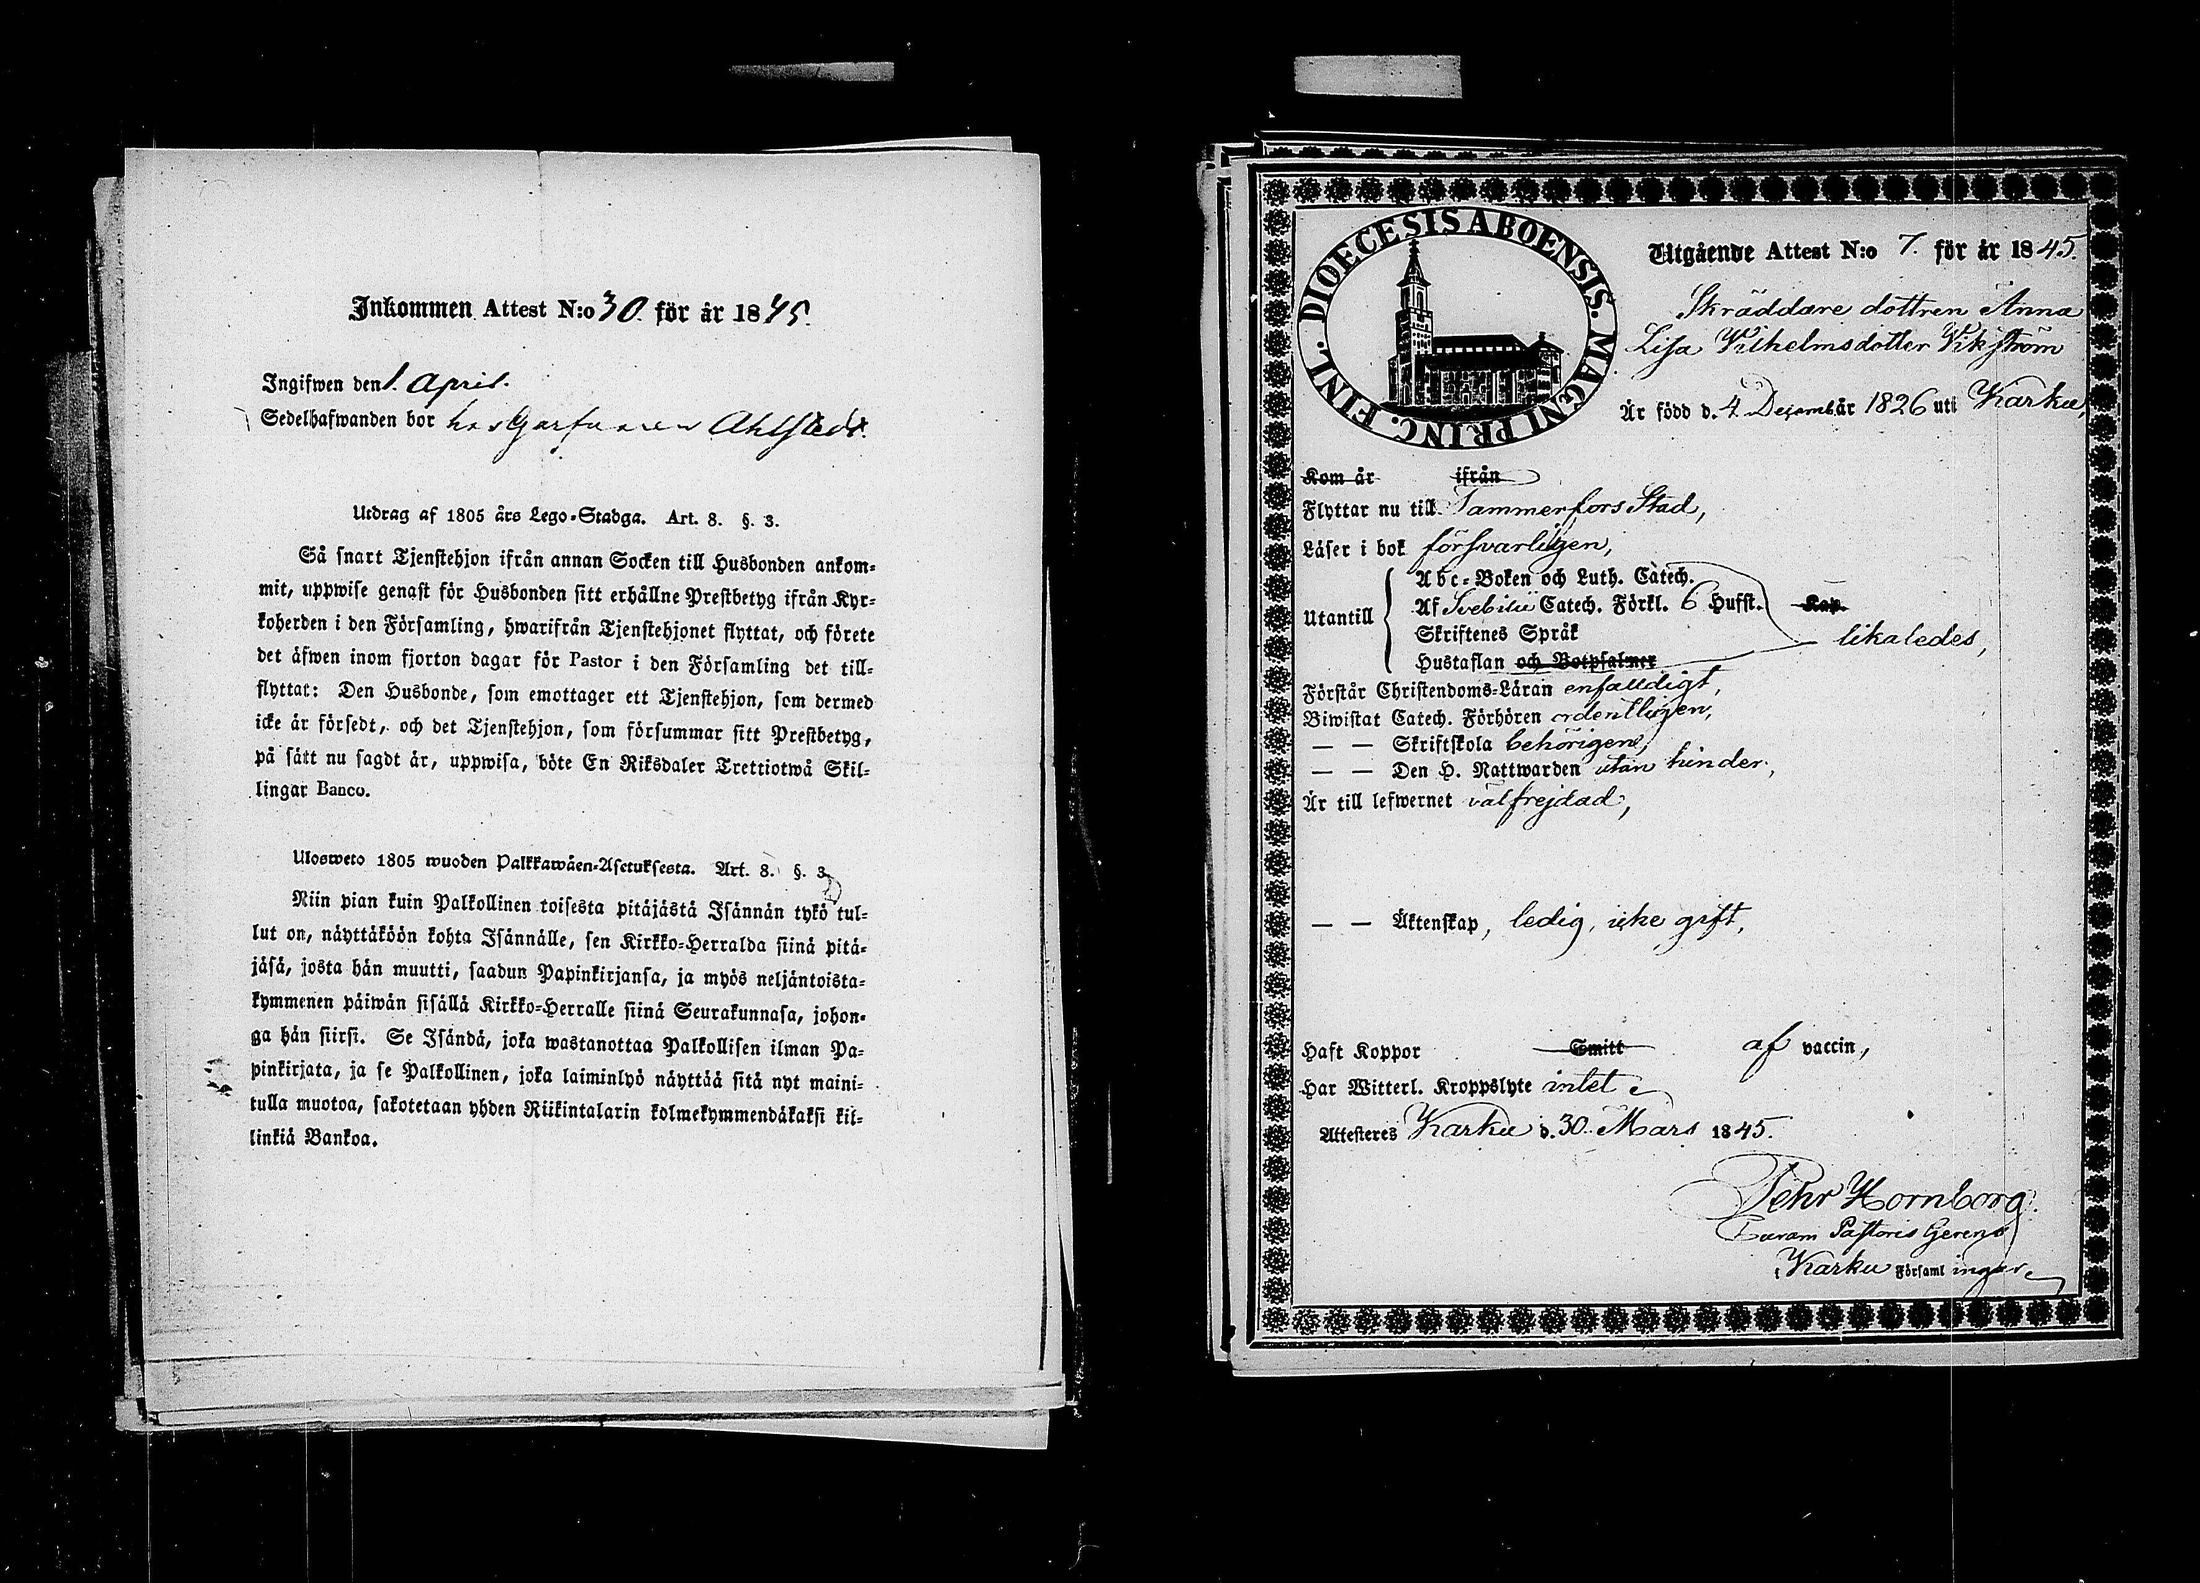 Inkommen Attest N:o 30. för år 1845.
Ingifwen den 1. April.
Sedelhafwanden bor hos Garfvaren Ahlstedt.
Utdrag af 1805 års Lego-Stadga. Art. 8. §. 3.
Så snart Tjenstehjon ifrån annan Socken till Husbonden ankom-
mit, uppwise genast för Husbonden sitt erhållne Prestbetyg ifrån Kyr-
koherden i den Församling, hwarifrån Tjenstehjonet flyttat, och förete
det äfwen inom fjorton dagar för Pastor i den Församling det till-
flyttat: Den Husbonde, som emottager ett Tjenstehjon, som dermed
icke är försedt, och det Tjenstehjon, som försummar sitt Prestbetyg,
på sätt nu sagdt är, uppwisa, böte En Riksdaler Trettiotwå Skil-
lingar Banco.
Ulosweto 1805 wuoden Palkkawäen-Asetuksesta. Art. 8. §. 3.
Niin pian kuin Palkollinen toisesta pitäjästä Isännän tykö tul-
lut on, näyttäköön kohta Isännälle, sen Kirkko-Herralda siinä pitä-
jäsä, josta hän muutti, saadun Papinkirjansa, ja myös neljäntoista-
kymmenen päiwän sisällä Kirkko-Herralle siinä Seurakunnasa, johon-
ga hän siirsi. Se Isändä, joka wastanottaa Palkollisen ilman Pa-
pinkirjata, ja se Palkollinen, joka laiminlyö näyttää sitä nyt maini-
tulla muotoa, sakotetaan yhden Riikintalarin kolmekymmendäkaksi kil-
linkiä Bankoa.
DIOECESIS ABOENSIS. MAGNI PRINC. FINL.
Utgående Attest N:o 7. för år 1845.
Skräddare dottren Anna
Lisa Wilhelmsdotter Wikström
Är född d. 4 Decemb år 1826 uti Karku,
Kom år ifrån
Flyttar nu till Tammerfors Stad,
Läser i bok försvarligen,
Utantill
Abc-Boken och Luth. Catech.
Af Svebilii Catech. Förkl. 6 Hufst. Kap.
Skriftenes Språk
likaledes,
Hustaflan och Botpsalmer
Förstår Christendoms-Läran enfaldigt,
Biwistat Catech. Förhören ordentligen,
— — Skriftskola behörigen,
— — Den H. Nattwarden utan hinder,
Är till lefwernet välfrejdad,
— — Äktenskap, ledig, icke gift,
Haft Koppor Smitt af vaccin,
Har Witterl. Kroppslyte intet
Attesteres Karku d. 30. Mars 1845.
Pehr Hornborg.
Curam Pastoris Gerens
i Karku Församlingar